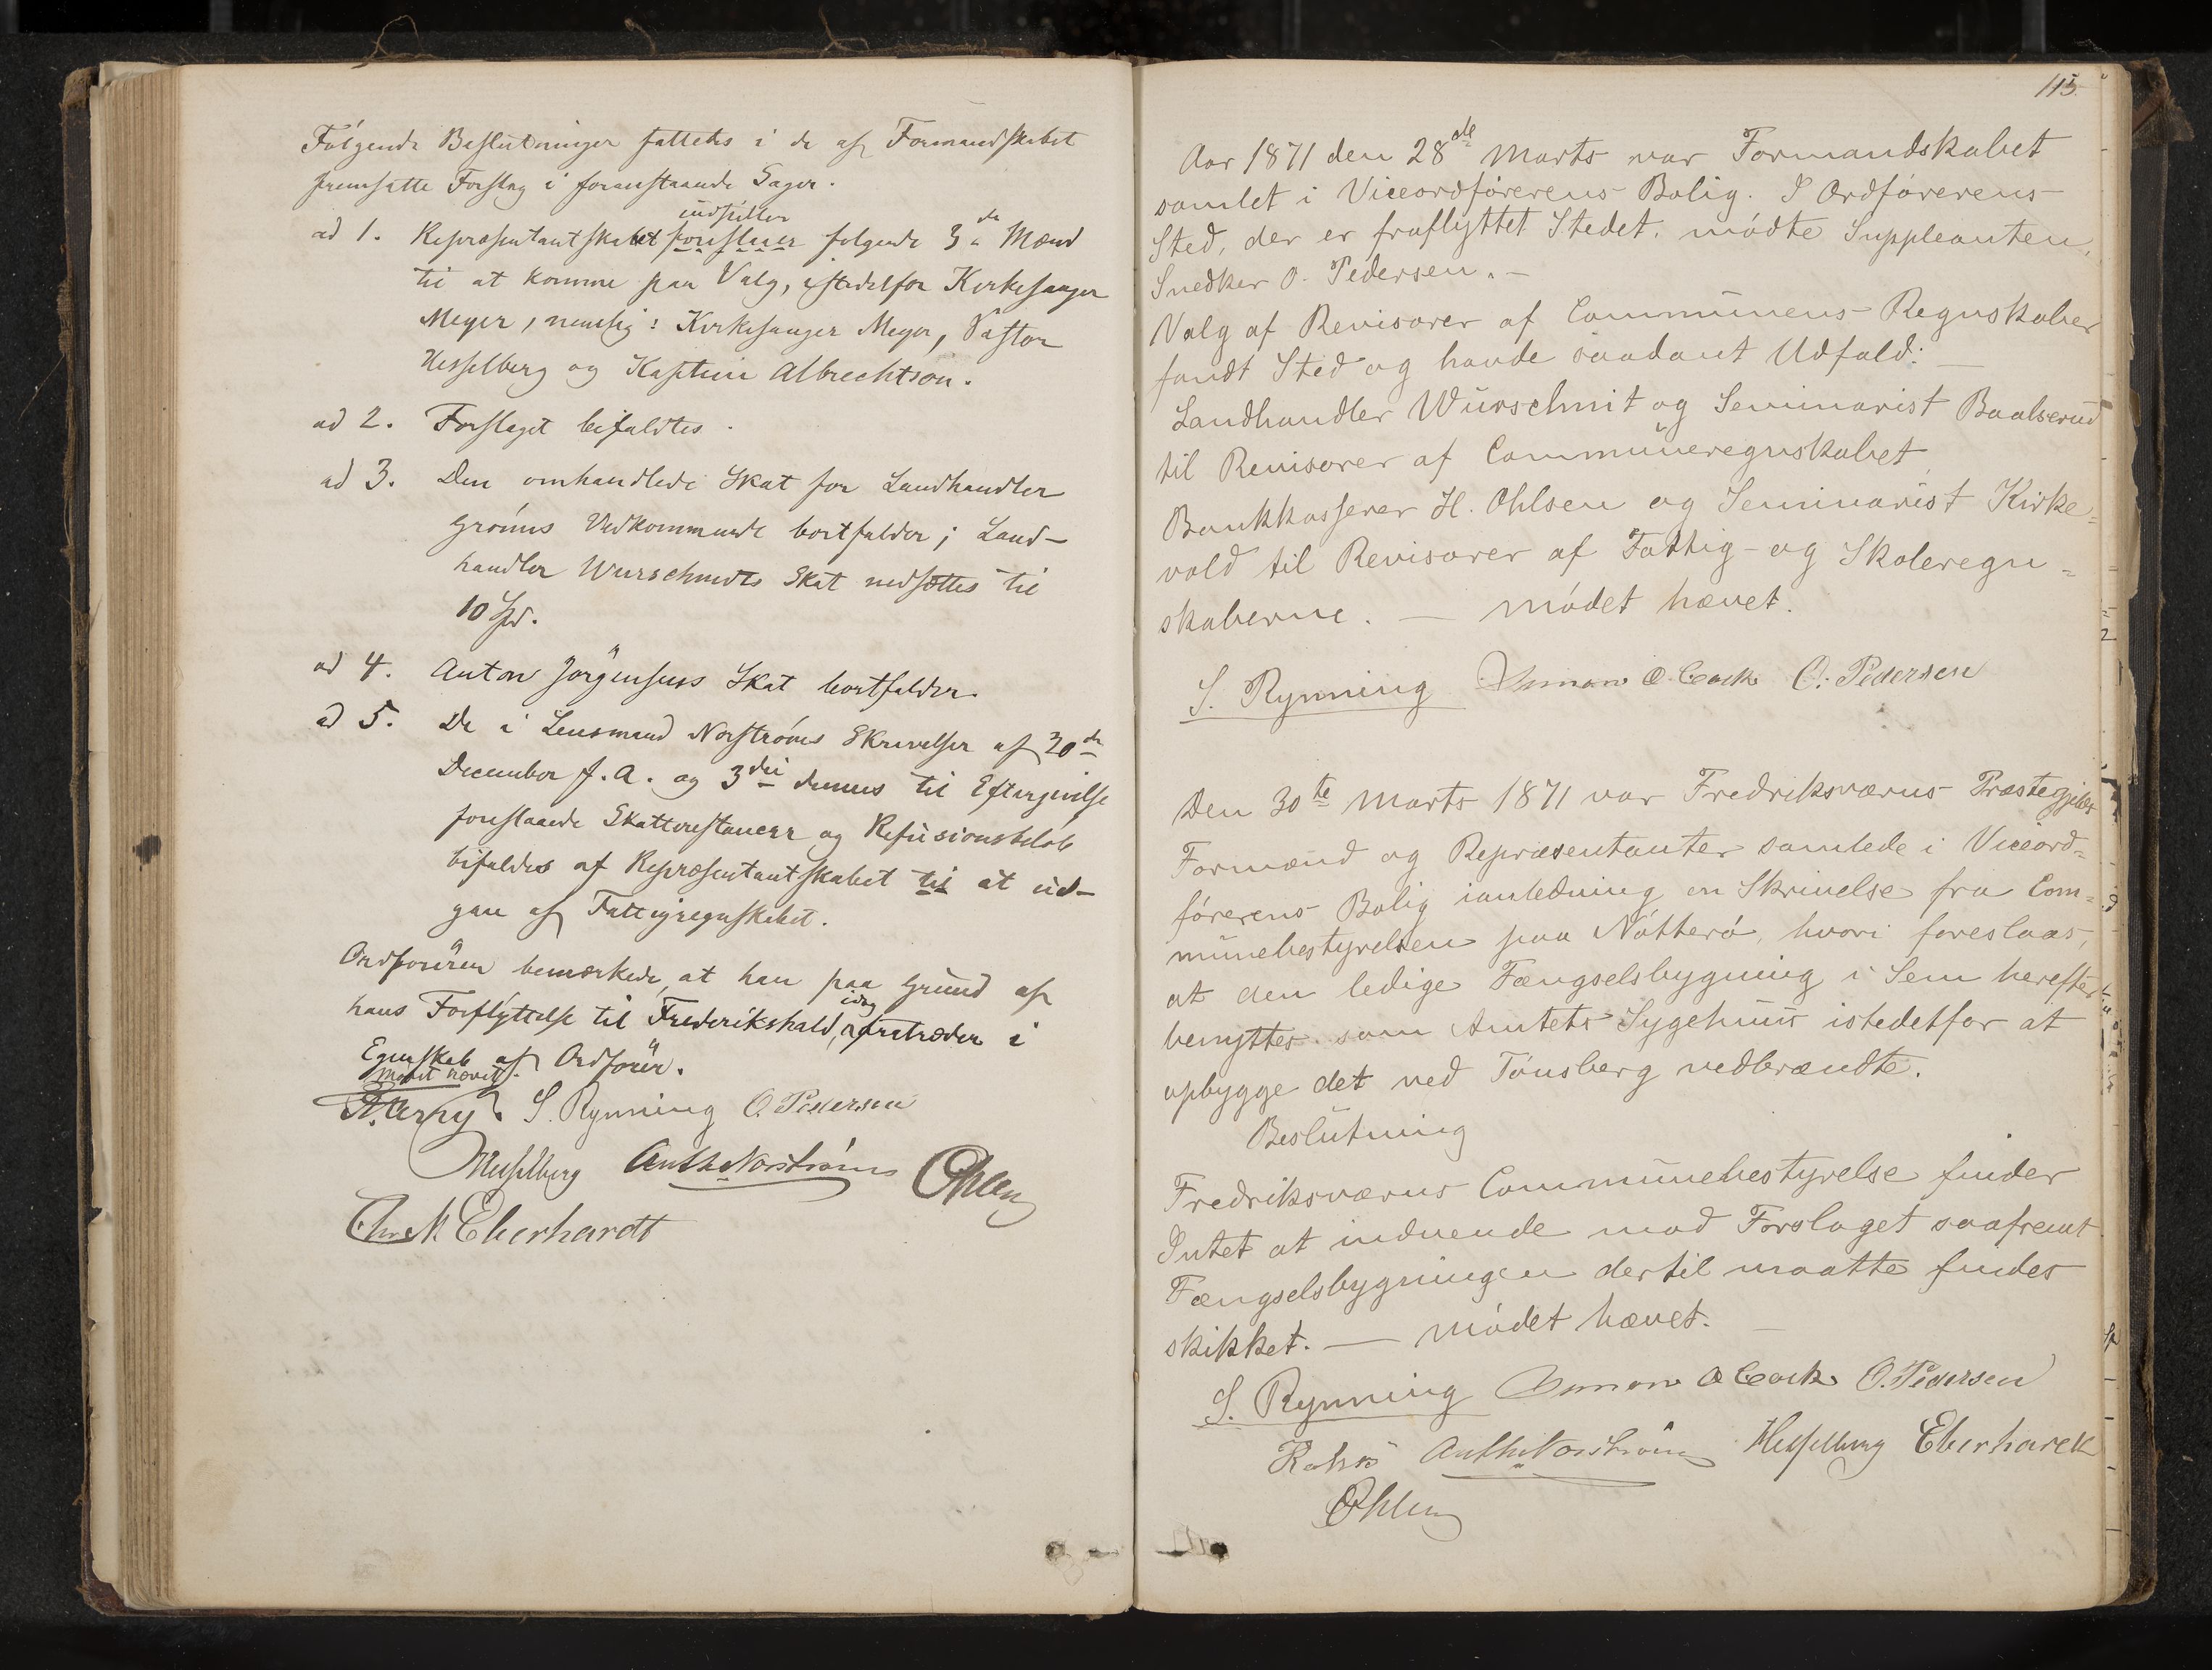 Følgende Beslutninger fattedes i de af Formandskabet
fremsatte Forslag i foranstaaende Sager.
indstiller
ad 1. Repræsentantskabet foreslaaer følgende 3de Mænd
til at komme paa Valg, istedetfor Kirkesanger
Meyer, nemlig: Kirkesanger Meyer, Pastor
Hesselberg og Kaptein Albrechtson.
ad 2. Forslaget bifaldtes.
ad 3. Den omhandlede Skat for Landhandler
Grønns Vedkommende bortfalder; Land-
handler Wurschmidts Skat nedsættes til
10 Spd.
ad 4. Anton Jörgensens Skat bortfalder.
ad 5. De i Lensmand Norströms Skrivelser af 30de
December f. A. og 3die dennes til Eftergivelse
foreslaaede Skatterestancer og Refusionsbeløb
bifaldes af Repræsentantskabet til at ud-
gaa af Fattigregnskabet.
Ordföreren bemærkede, at han paa Grund af
idag
hans Forflyttelse til Frederikshald, fratræder i
Egenskab af Ordförer.
Mødet hævet.
S. Rynning O. Pedersen
Hesselberg Anth Norström Ohlsen
Chr. M. Eberhardt
115.
Aar 1871 den 28de Marts var Formandskabet
samlet i Viceordførerens Bolig. I Ordførerens
Sted, der er fraflyttet Stedet, mødte Suppleanten,
Snedker O. Pedersen. —
Valg af Revisorer af Communens Regnskaber
fandt Sted og havde saadant Udfald: —
Landhandler Würschmit og Seminarist Baalserud
til Revisorer af Communeregnskabet,
Bankkasserer H. Ohlsen og Seminarist Kirke=
vold til Revisorer af Fattig- og Skoleregn=
skaberne. — Mødet hævet.
S. Rynning Simon O Cock O. Pedersen
Den 30te Marts 1871 var Fredriksværns Præstegjelds
Formænd og Repræsentanter samlede i Viceord=
førerens Bolig ianledning en Skrivelse fra Com=
munebestyrelsen paa Nøtterø, hvori foreslaaes,
at den ledige Fængselsbygning i Sem herefter
benyttes som Amtets Sygehuus istedetfor at
opbygge det ved Tønsberg nedbrændte.
Beslutning
Fredriksværns Communebestyrelse finder
Intet at indvende mod Forslaget saafremt
Fængselsbygningen dertil maatte findes
skikket. — Mødet hævet. —
S. Rynning Simon O Cock O. Pedersen
Anth Norström Hesselberg Eberhardt
Ohlsen